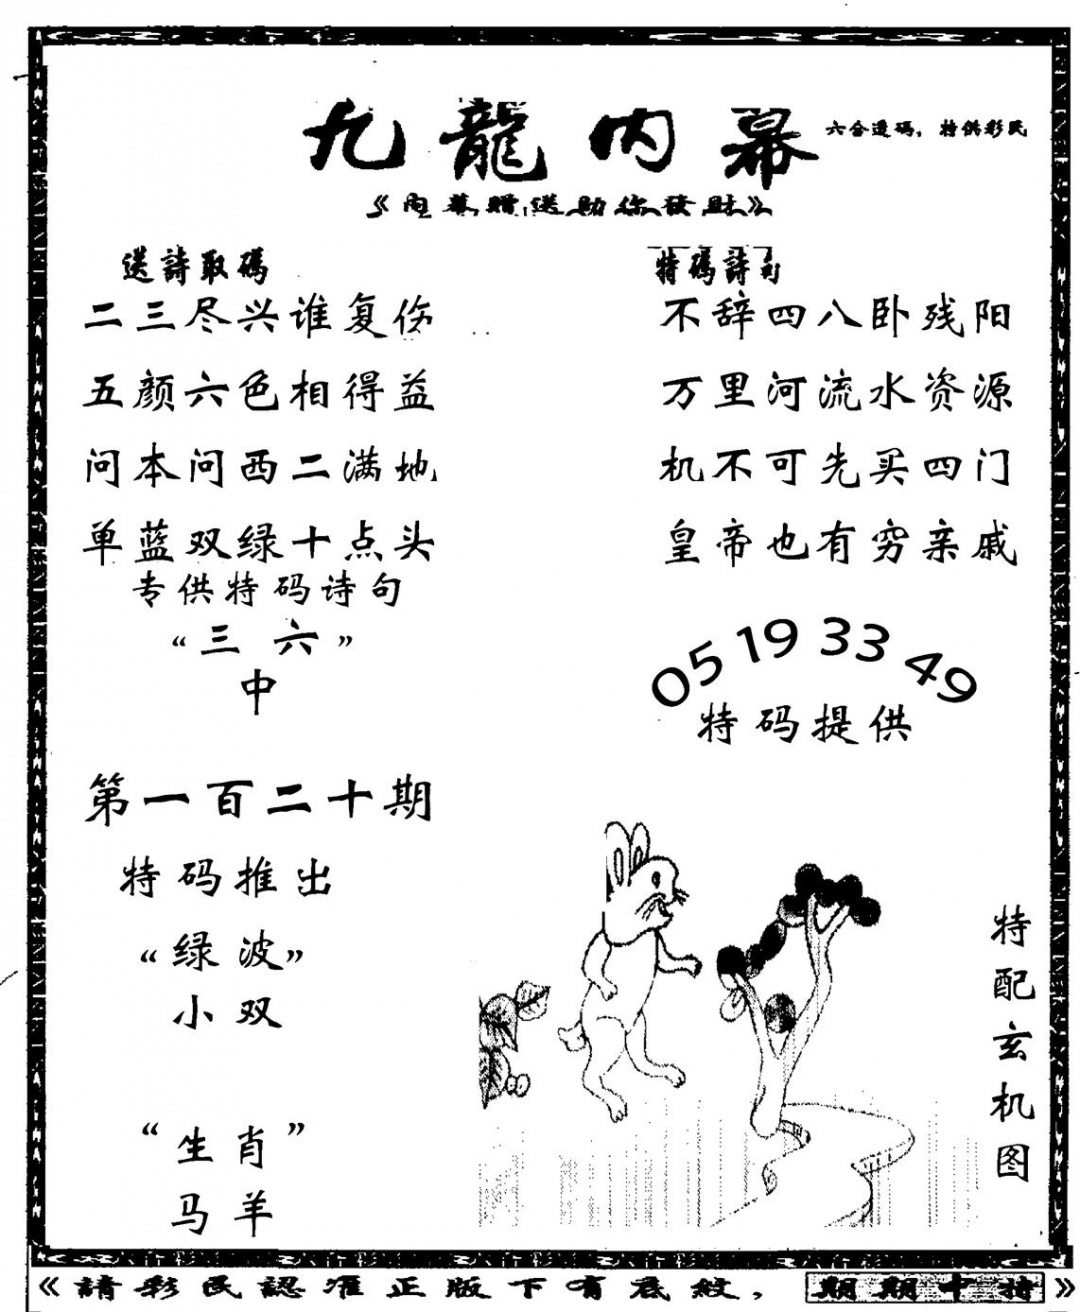 九龍内幕
六合透码，特供彩民
《内幕赠送助你發財》
送詩取碼
二三尽兴谁复伤
五颜六色相得益
问本问西二满地
单蓝双绿十点头
专供特码诗句
“三六”
中
第一百二十期
特码推出
“绿波”
小双
“生肖”
马羊
特碼詩句
不辞四八卧残阳
万里河流水资源
机不可先买四门
皇帝也有穷亲戚
05 19 33 49
特码提供
特配玄机图
《請彩民認准正版下有底紋，期期中特》